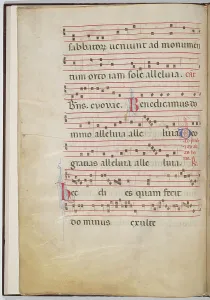 sabbatorum veniunt ad monumen
tum orto iam sole alleluia.
Bñs. evovae. Benedicamus do
mino alleluia alle luia. Deo
gratias alleluia alle luia.
Hec di es quam fecit
dominus exulte